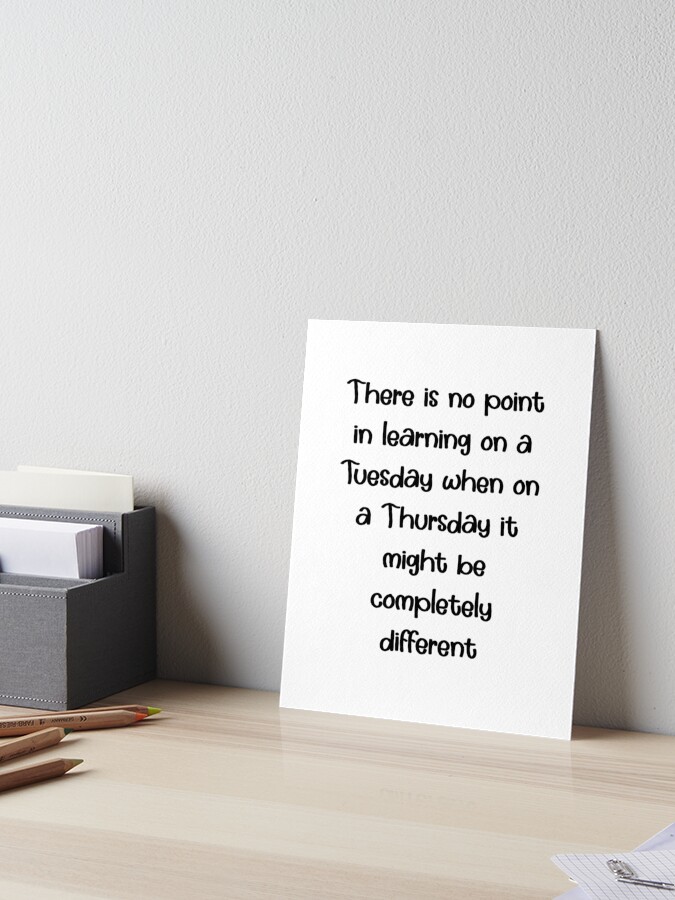 There is no point
in learning on a
Tuesday when on
a Thursday it
might be
completely
different